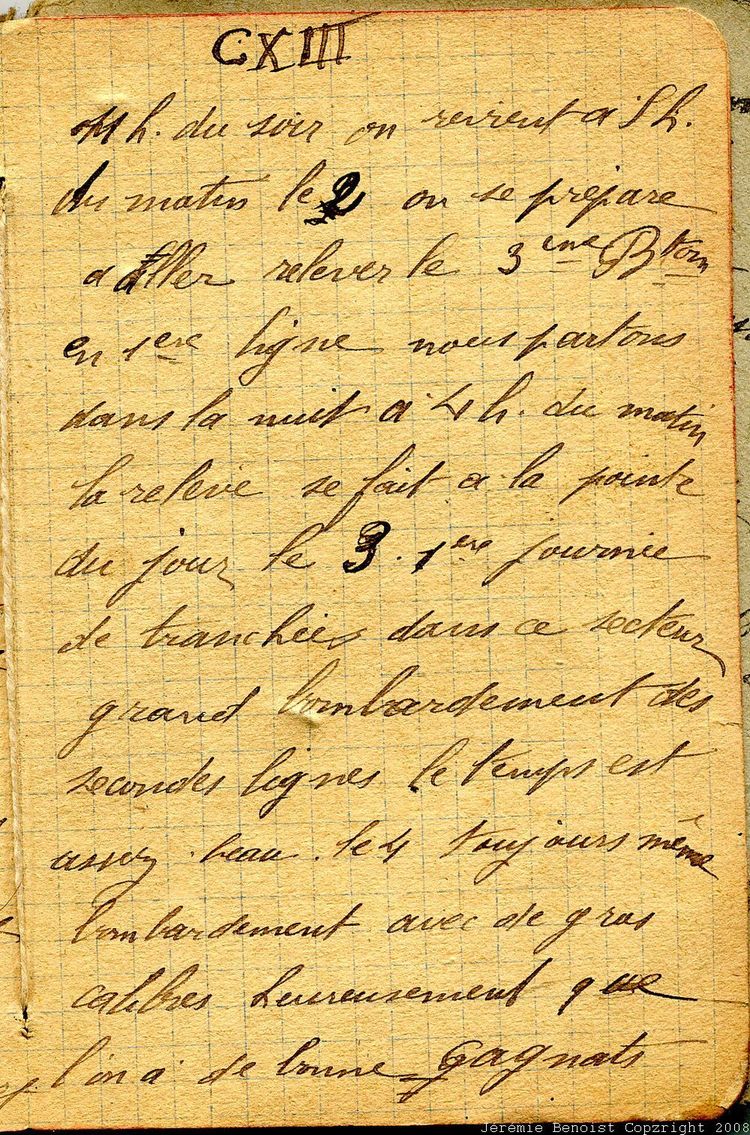 CXIII
h. du soir on revient a 5 h.
du matin le 2 on se prépare
a aller relever le 3eme Bton
en 1ere ligne nous partons
dans la nuit a 4 h. du matin
la relève se fait a la pointe
du jour le 3. 1ere journée
de tranchées dans ce secteur
grand bombardement des
secondes lignes le temps est
assez beau. le 4 toujours même
bombardement avec de gros
calibres heureusement que
l'on a de bonne gagnats
Jeremie Benoist Copzright 2008